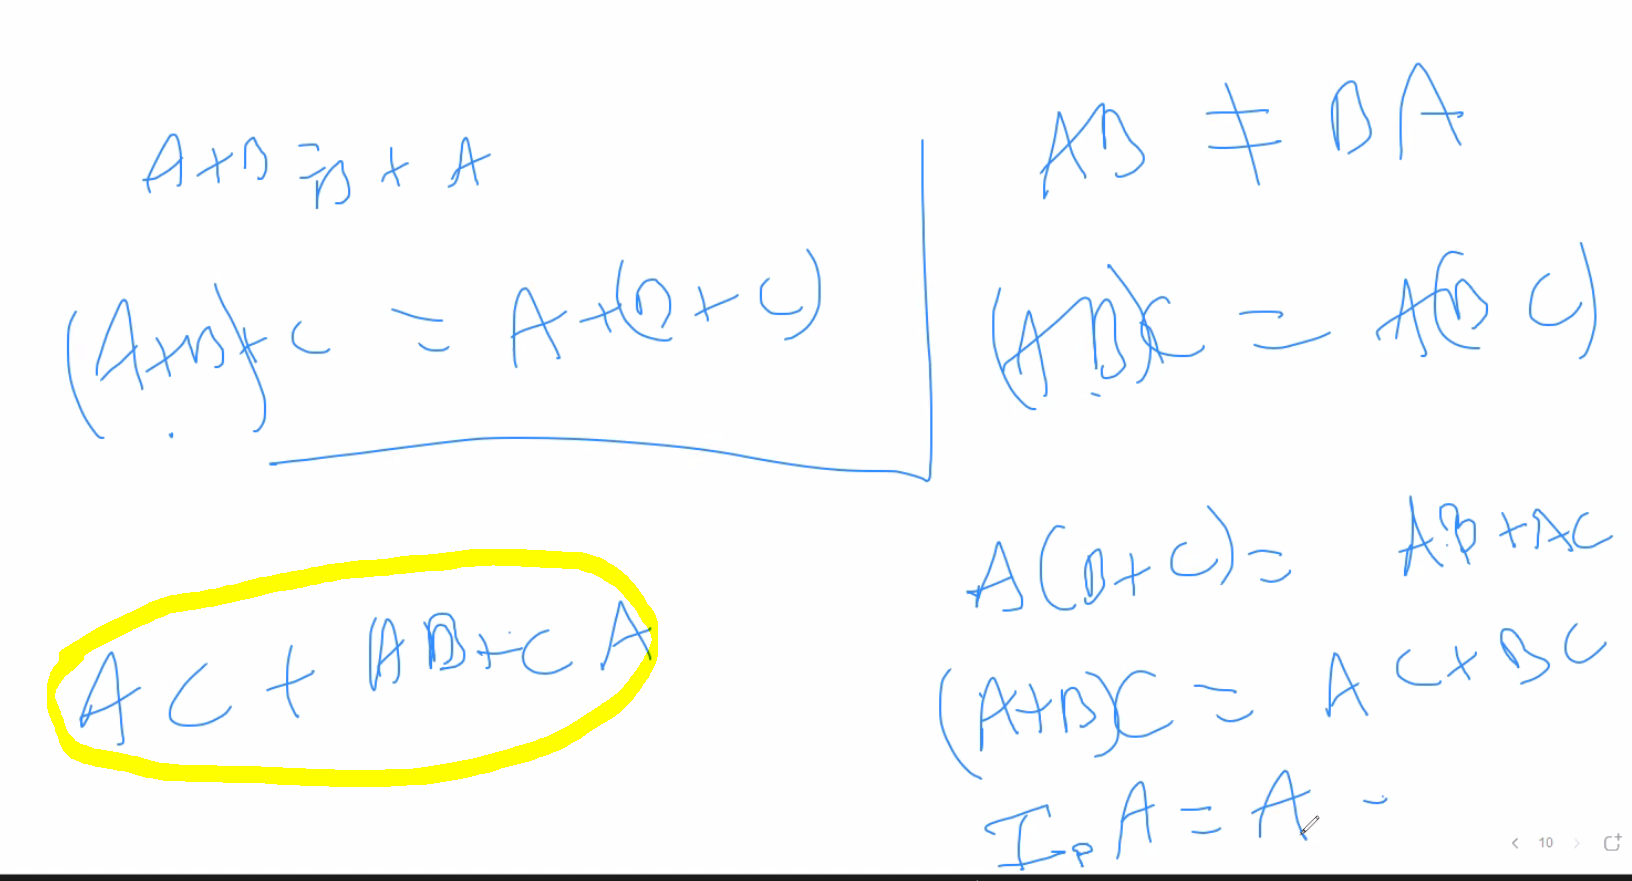 A+B = B + A
(A+B)+C = A+(B+C)
AC + AB+CA
AB ≠ BA
(AB)C = A(BC)
A(B+C) = AB+AC
(A+B)C = AC+BC
I_p A = A -
10